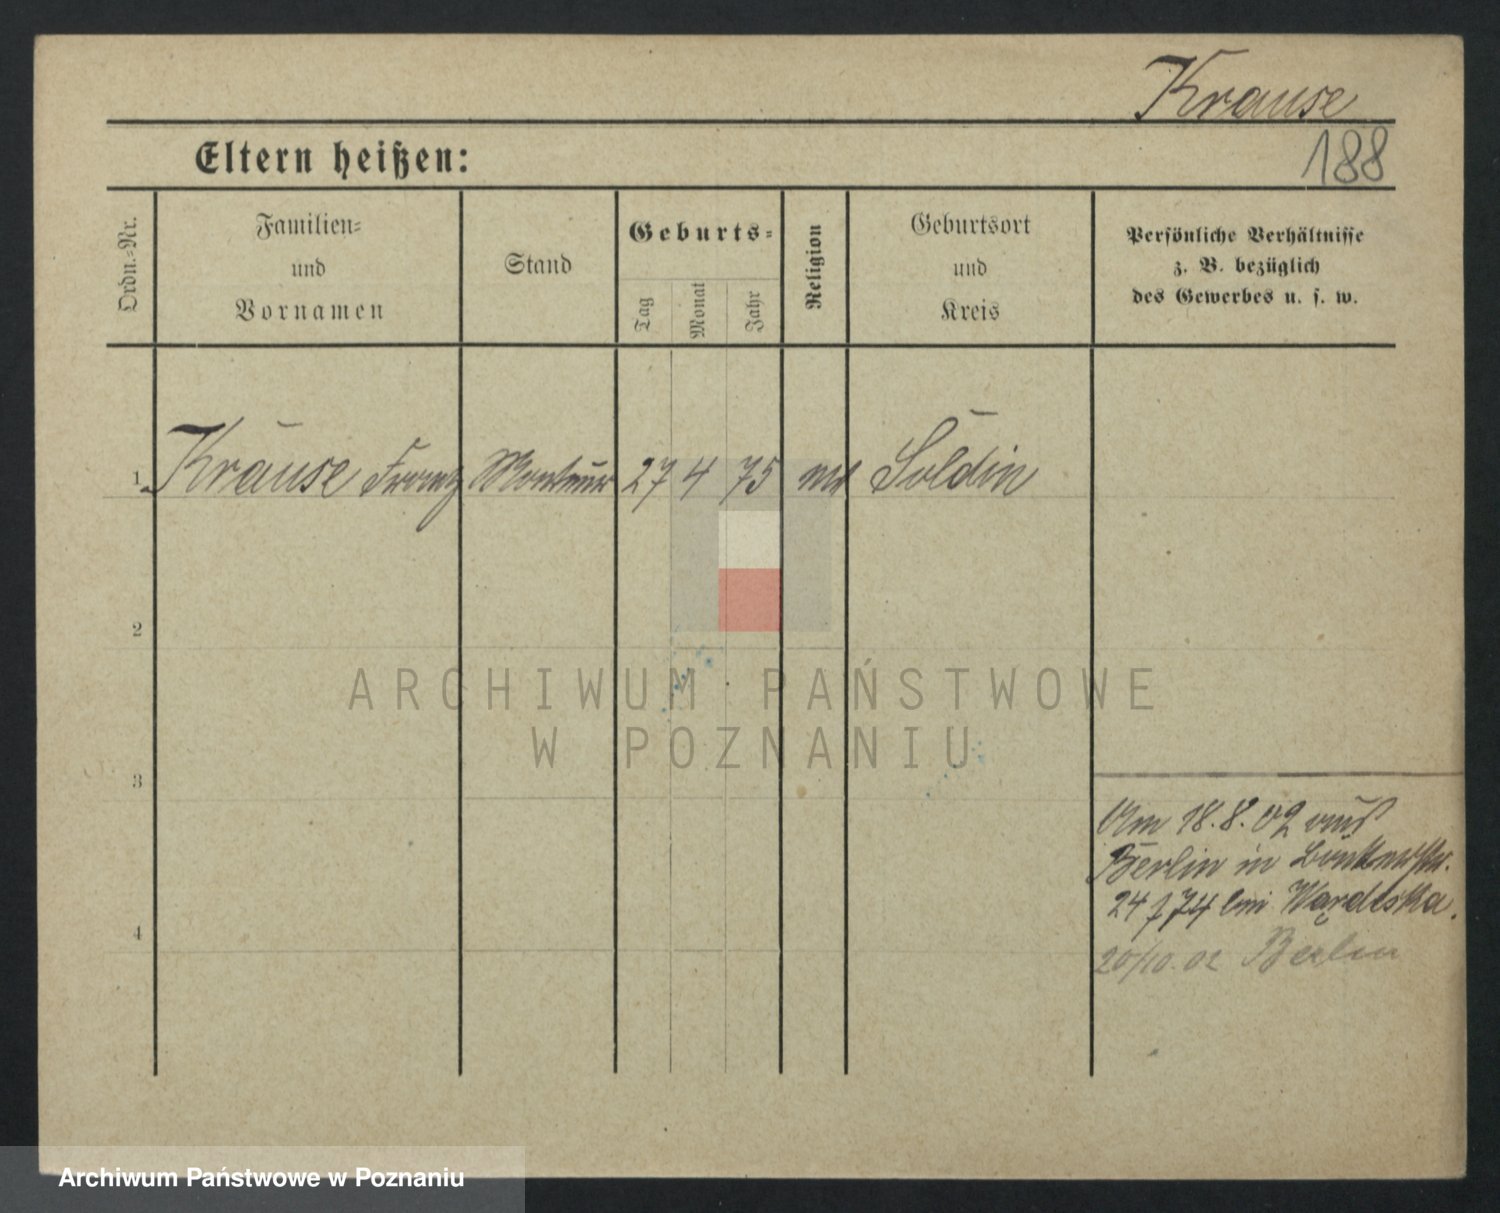 Krause
188
Eltern heißen:
Ordn.-Nr.
Familien-
und
Vornamen
Stand
Geburts-
Tag
Monat
Jahr
Religion
Geburtsort
und
Kreis
Persönliche Verhältnisse
z. B. bezüglich
des Gewerbes u. s. w.
1 Krause Franz Monteur 27 4 75 Soldin
2
3
4
ARCHIWUM PAŃSTWOWE
W POZNANIU
Am 18.8.02 aus
Berlin in
24 bei
20/10.02 Berlin
Archiwum Państwowe w Poznaniu